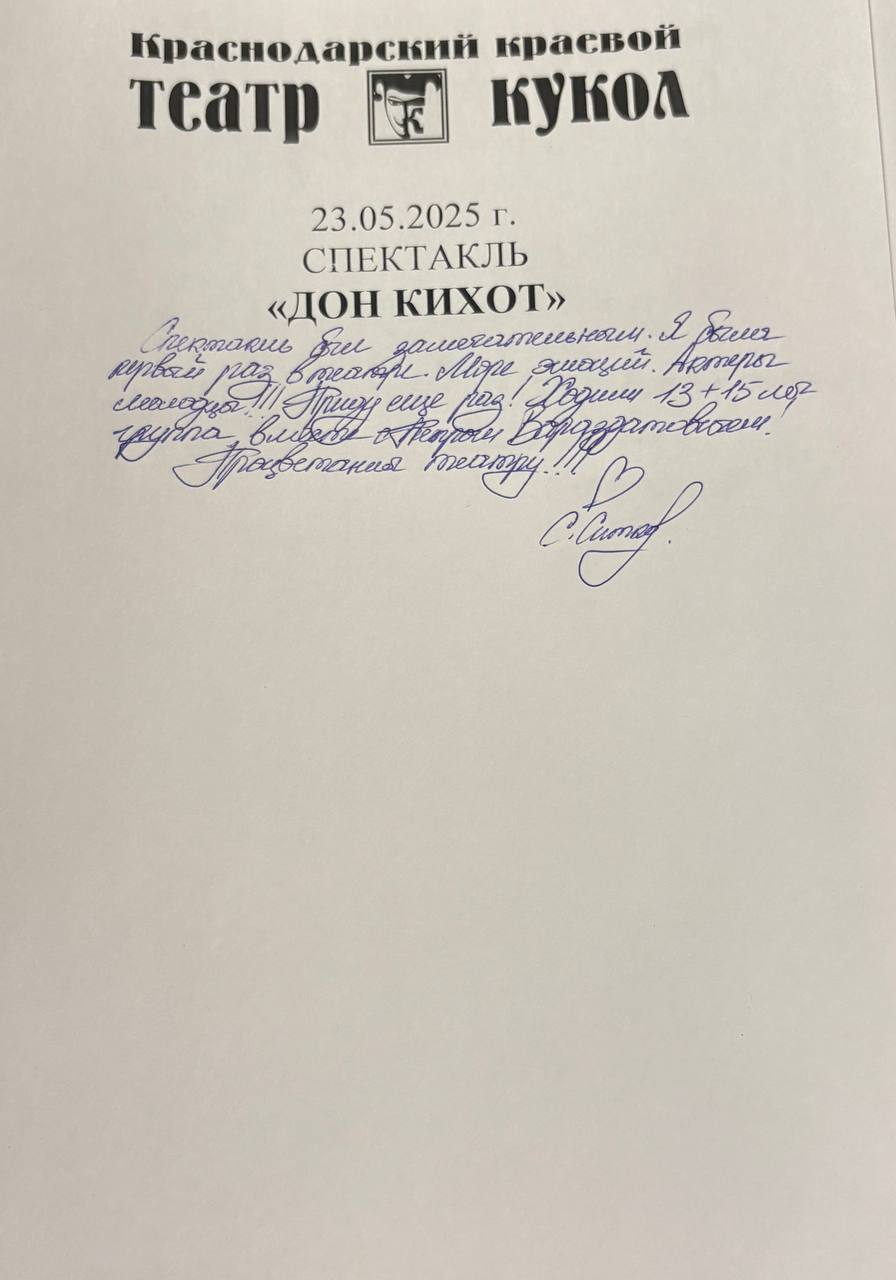 Краснодарский краевой
театр кукол
23.05.2025 г.
СПЕКТАКЛЬ
«ДОН КИХОТ»
Спектакль был замечательным. Я была
первый раз в театре. Море эмоций. Актеры
молодцы!!! Приду еще раз! Ходили 13+15 лет
группа, вместе с Петром
Процветания театру!!!